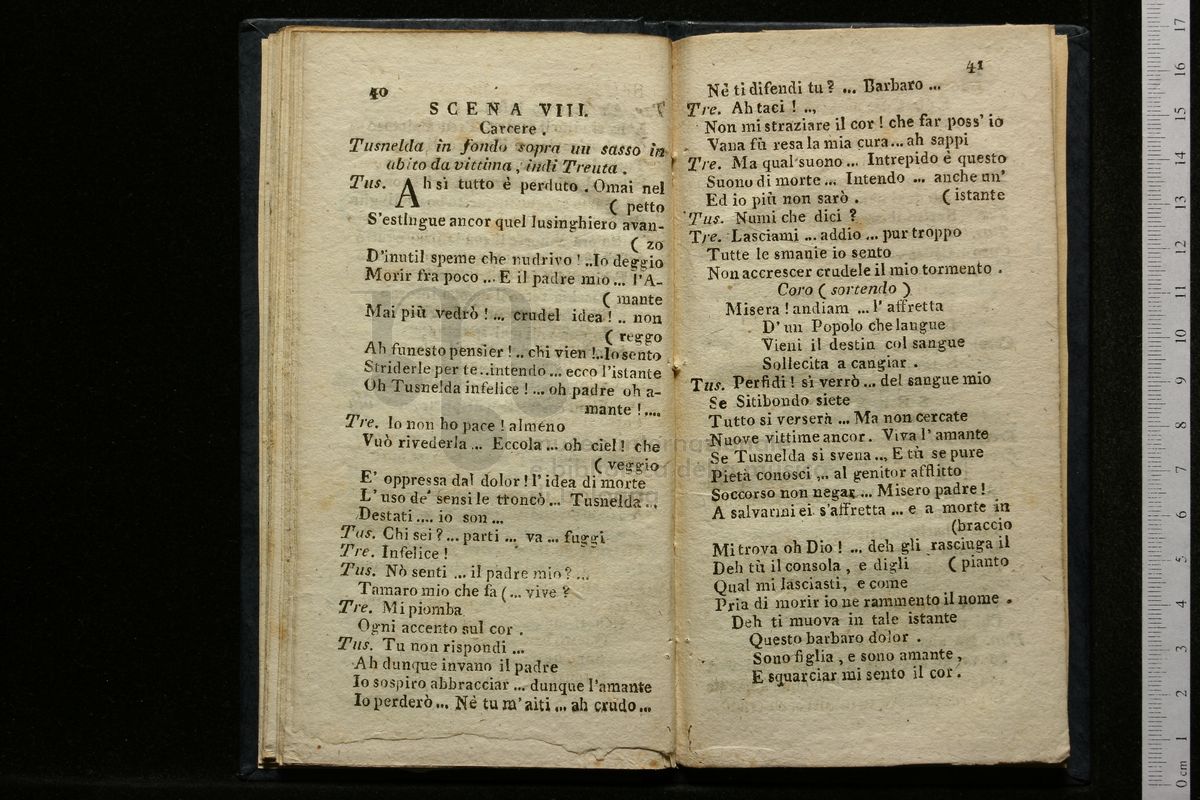 40
SCENA VIII.
Carcere.
Tusnelda in fondo sopra un sasso in
abito da vittima, indi Treuta.
Tus. Ah sì tutto è perduto. Omai nel
( petto
S'estingue ancor quel lusinghiero avan-
( zo
D'inutil speme che nudrivo! .. Io deggio
Morir fra poco ... E il padre mio ... l'A-
( mante
Mai più vedrò! ... crudel idea! .. non
( reggo
Ah funesto pensier! .. chi vien!.. Io sento
Striderle per te .. intendo ... ecco l'istante
Oh Tusnelda infelice! ... oh padre oh a-
mante! ....
Tre. Io non ho pace! almeno
Vuò rivederla ... Eccola ... oh ciel! che
( veggio
E' oppressa dal dolor! l'idea di morte
L'uso de' sensi le troncò ... Tusnelda ..,
Destati .... io son ...
Tus. Chi sei? ... parti ... va ... fuggi
Tre. Infelice!
Tus. Nò senti ... il padre mio? ...
Tamaro mio che fa (... vive?
Tre. Mi piomba
Ogni accento sul cor.
Tus. Tu non rispondi ...
Ah dunque invano il padre
Io sospiro abbracciar ... dunque l'amante
Io perderò ... Nè tu m'aiti ... ah crudo ...
41
Nè ti difendi tu? ... Barbaro ...
Tre. Ah taci! ..,
Non mi straziare il cor! che far poss' io
Vana fù resa la mia cura ... ah sappi
Tre. Ma qual suono ... Intrepido è questo
Suono di morte ... Intendo ... anche un'
Ed io più non sarò. ( istante
Tus. Numi che dici?
Tre. Lasciami ... addio ... pur troppo
Tutte le smanie io sento
Non accrescer crudele il mio tormento.
Coro ( sortendo )
Misera! andiam ... l' affretta
D' un Popolo che langue
Vieni il destin col sangue
Sollecita a cangiar.
Tus. Perfidi! sì verrò ... del sangue mio
Se Sitibondo siete
Tutto si verserà ... Ma non cercate
Nuove vittime ancor. Viva l' amante
Se Tusnelda si svena .., E tù se pure
Pietà conosci ,.. al genitor afflitto
Soccorso non negar ... Misero padre!
A salvarmi ei s'affretta ... e a morte in
(braccio
Mi trova oh Dio! ... deh gli rasciuga il
Deh tù il consola, e digli ( pianto
Qual mi lasciasti, e come
Pria di morir io ne rammento il nome.
Deh ti muova in tale istante
Questo barbaro dolor.
Sono figlia, e sono amante,
E squarciar mi sento il cor.